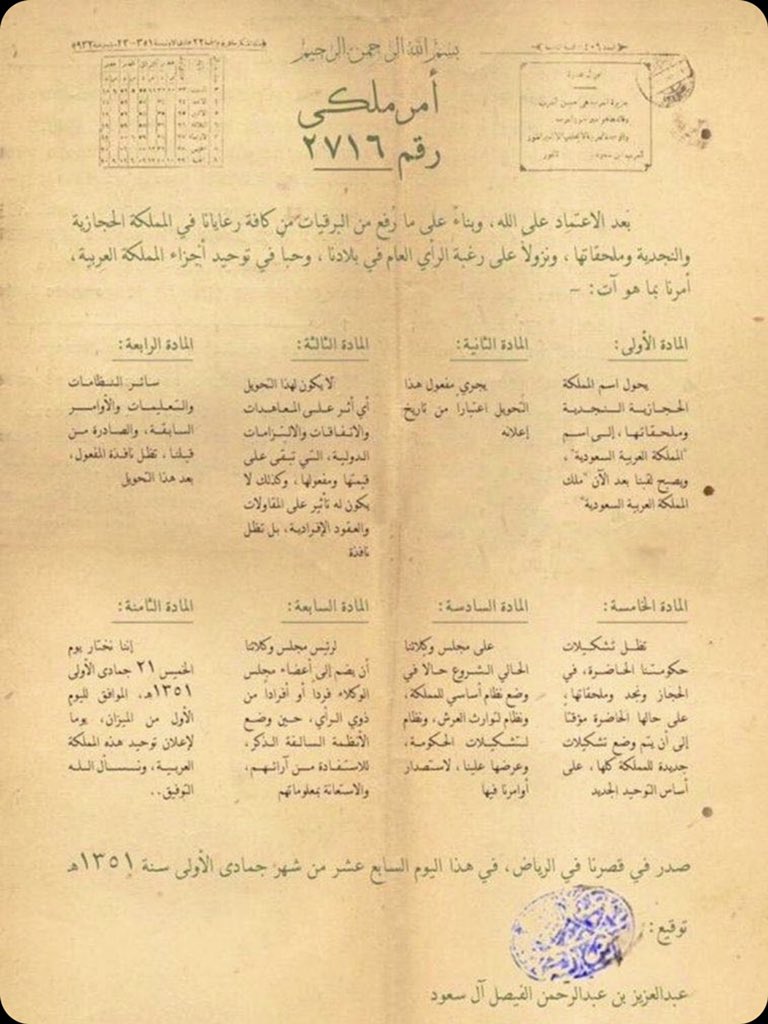 بسم الله الرحمن الرحيم
أمر ملكي
رقم ٢٧١٦
بعد الاعتماد على الله، وبناءً على ما رُفع من البرقيات من كافة رعايانا في المملكة الحجازية
والنجدية وملحقاتها، ونزولاً على رغبة الرأي العام في بلادنا، وحبا في توحيد أجزاء المملكة العربية،
أمرنا بما هو آت: -
المادة الأولى:
يحول اسم المملكة
الحجازية النجدية
وملحقاتها، إلى اسم
"المملكة العربية السعودية"،
ويصبح لقبنا بعد الآن "ملك
المملكة العربية السعودية"
المادة الثانية:
يجري مفعول هذا
التحويل اعتباراً من تاريخ
إعلانه
المادة الثالثة:
لا يكون لهذا التحويل
أي أثر على المعاهدات
والاتفاقات والالتزامات
الدولية، التي تبقى على
قيمتها ومفعولها، وكذلك لا
يكون له تأثير على المقاولات
والعقود الإفرادية، بل تظل
نافذة
المادة الرابعة:
سائر النظامات
والتعليمات والأوامر
السابقة، والصادرة من
قبلنا، تظل نافذة المفعول،
بعد هذا التحويل
المادة الخامسة:
تظل تشكيلات
حكومتنا الحاضرة، في
الحجاز ونجد وملحقاتها،
على حالها الحاضرة مؤقتا
إلى أن يتم وضع تشكيلات
جديدة للمملكة كلها، على
أساس التوحيد الجديد
المادة السادسة:
على مجلس وكلائنا
الحالي الشروع حالا في
وضع نظام أساسي للمملكة،
ونظام لتوارث العرش، ونظام
لتشكيلات الحكومة،
وعرضها علينا، لاستصدار
أوامرنا فيها
المادة السابعة:
لرئيس مجلس وكلائنا
أن يضم إلى أعضاء مجلس
الوكلاء فرداً أو أفراداً من
ذوي الرأي، حين وضع
الأنظمة السالفة الذكر،
للاستفادة من آرائهم،
والاستعانة بمعلوماتهم
المادة الثامنة:
إننا نختار يوم
الخميس ٢١ جمادى الأولى
١٣٥١هـ، الموافق لليوم
الأول من الميزان، يوما
لإعلان توحيد هذه المملكة
العربية، ونسأل الله
التوفيق..
صدر في قصرنا في الرياض، في هذا اليوم السابع عشر من شهر جمادى الأولى سنة ١٣٥١هـ
توقيع:
عبدالعزيز بن عبدالرحمن الفيصل آل سعود